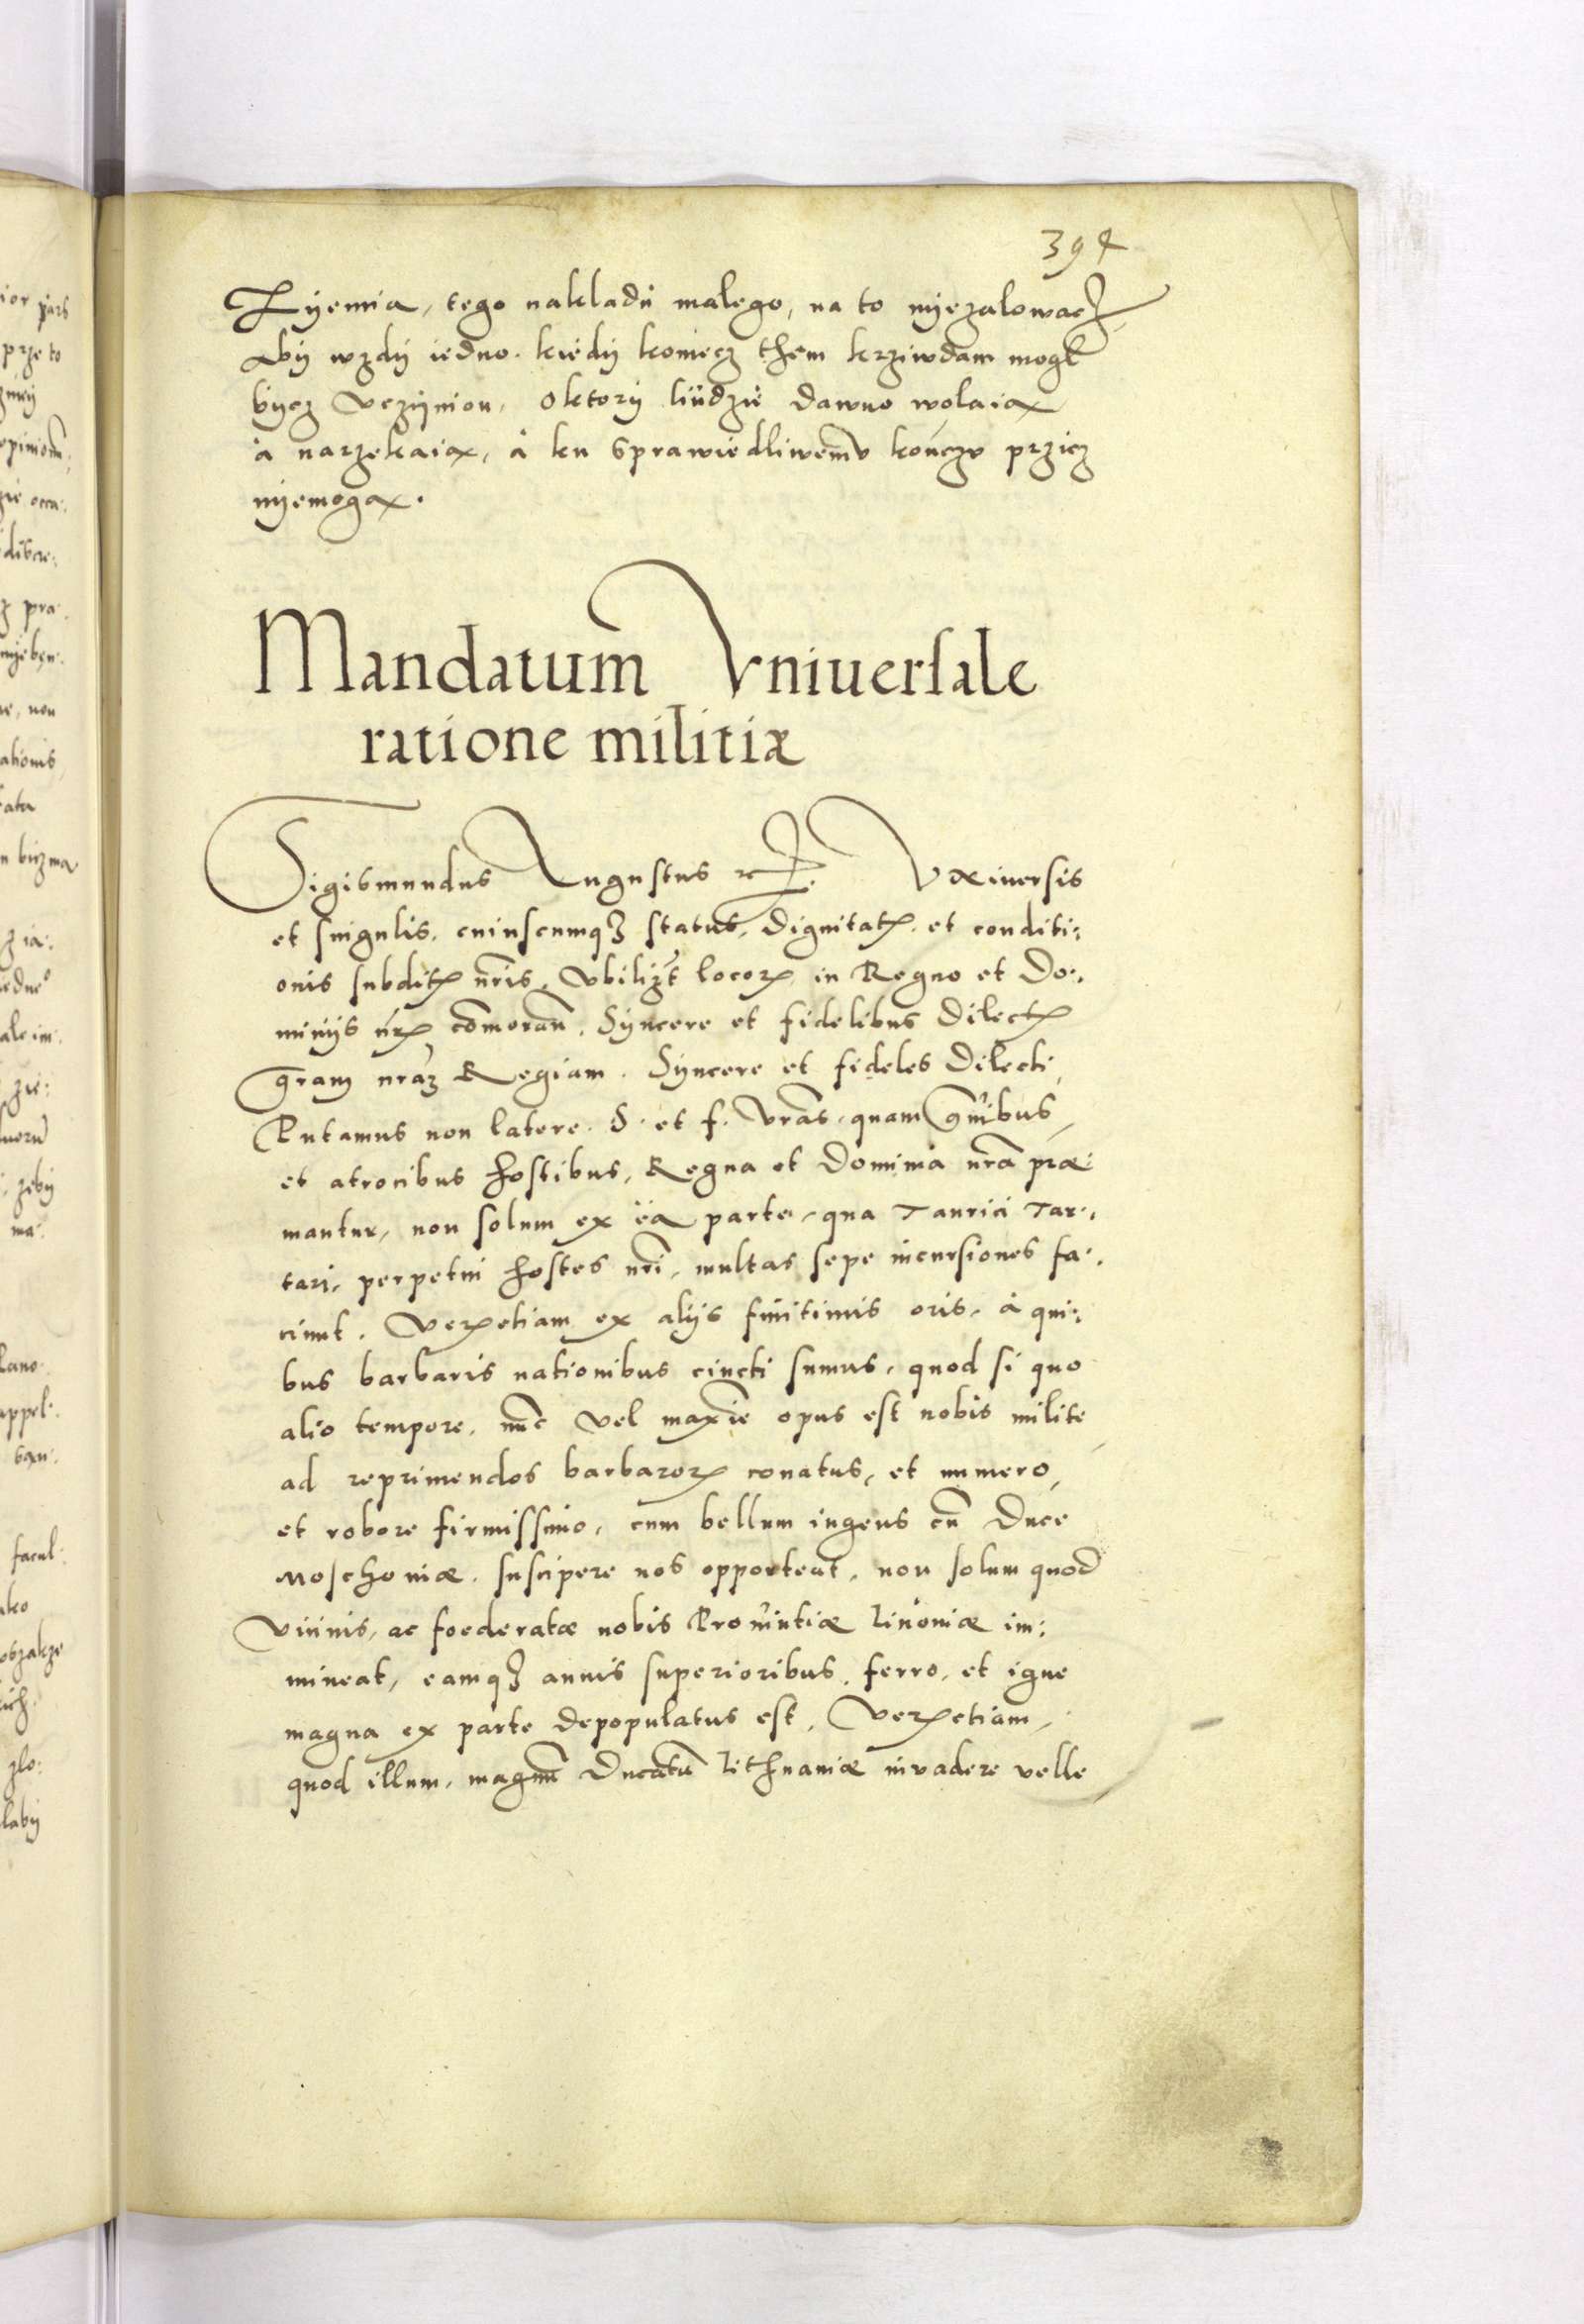 394
Zyemia, tego nakladu malego, na to nyezalowacz
Aby wzdy iedno. kiedy koniecz them krziwdam mogl
bycz uczynion, o ktory liudzie dawno wolaią
á narzekaią, á ku sprawiedliwemu kończu przicz
nyemogą.
Mandatum Vniuersale
ratione militiæ
Sigismundus Augustus etc. Vniuersis
et singulis, cuiuscumqȝ status, dignitatꝭ, et conditi:
onis subditꝭ nr̃is, vbiliꝫt locorꝝ in Regno et Do:
minijs nr̃ꝭ com̃oran̄. Syncere et fidelibus Dilectꝭ
gr̃am nr̃aꝫ Regiam. Syncere et fideles Dilecti,
Putamus non latere. S. et f. vr̃as, quam grãibus,
et atrocibus hostibus, Regna et Dominia nr̃a præ:
mantur, non solum ex ea parte, qua Taurici Tar:
tari, perpetui hostes nr̃i, multas sepe incursiones fa:
ciunt. Verꝝetiam ex alijs finitimis oris, á qui:
bus barbaris nationibus cincti sumus, quod si quo
alio tempore, nũc vel maxĩe opus est nobis milite
ad reprimendos barbarorꝝ conatus, et numero,
et robore firmissimo, cum bellum ingens cũ Duce
Moschoviæ, suscipere nos opporteat, non solum quod
Viuinis, ac foederatæ nobis Provintiæ Livoniæ im:
mineat, eamqȝ annis superioribus, ferro, et igne
magna ex parte depopulatus est, Verꝝetiam,
quod illum, magnũ Ducatũ Lithuaniæ invadere velle